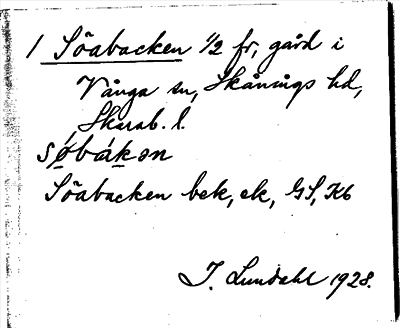 1 Söabacken 1/2 fr, gård i
Vånga sn, Skånings hd,
Skarab. l.
söbákən
Söabacken bek, ek, GS, Kb
J. Lundahl 1928.